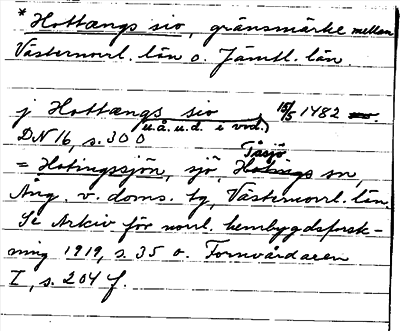 * Hottængs sio, gränsmärke mellan
Västernorrl. län o. Jämtl. län.
j Hottængs sio 15/5 1482
u.å.u.d. i vod.)
DN 16, s. 300
Tåsjö
= Hotingssjön, sjö, Hotings sn,
Ång. v. doms. tg, Västernorrl. län.
Se Arkiv för norrl. hembygdsforsk-
ning 1919, s. 35 o. Fornvårdaren
I, s. 204 f.